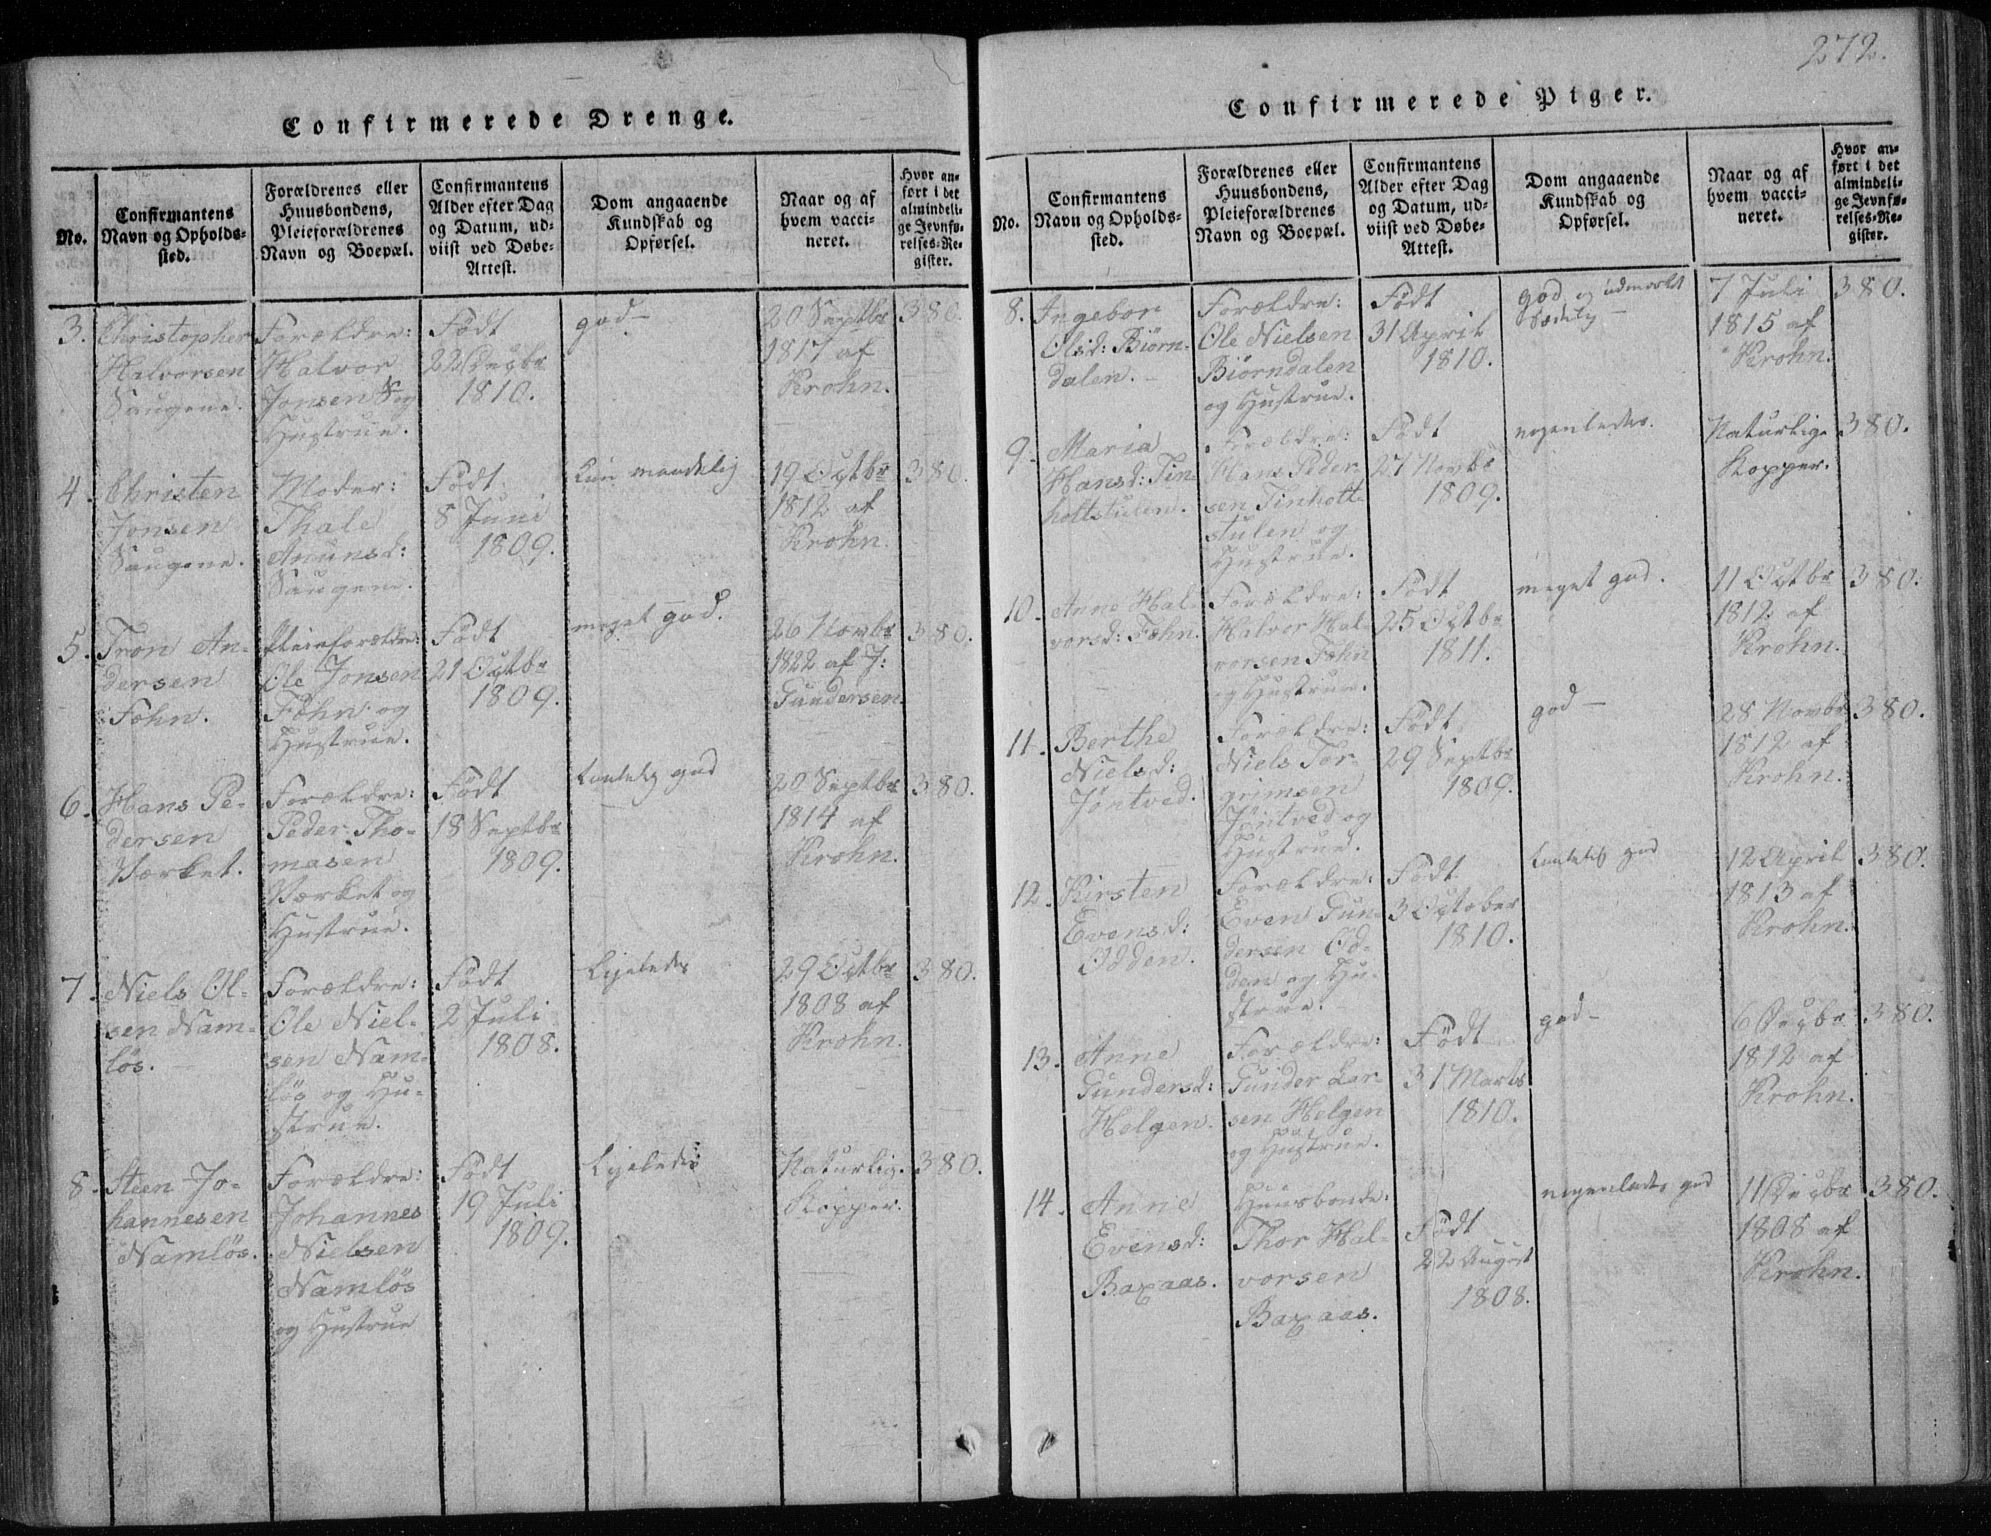 272.
Confirmerede Drenge.
No.
Confirmantens
Navn og Opholds-
sted.
Forældrenes eller
Huusbondens,
Pleieforældrenes
Navn og Boepæl.
Confirmantens
Alder efter Dag
og Datum, ud-
viist ved Døbe-
Attest.
Dom angaaende
Kundskab og
Opførsel.
Naar og af
hvem vacci-
neret.
Hvor an-
ført i det
almindeli-
ge Jevnfø-
relses-Re-
gister.
3.
Christopher
Halvorsen
Saugene.
Forældre:
Halvor
Jonsen S og
Hustrue.
Født
22 Decbr
1810.
god
20 Septbr
1817 af
Krohn.
380.
4.
Christen
Jonsen
Saugene.
Moder:
Thale
Anunsd:
Saugene.
Født
8 Juni
1809.
kun maadelig
19 Octbr
1812 af
Krohn.
380.
5.
Tron An-
dersen
Fohn.
Pleieforældre:
Ole Jonsen
Føhn og
Hustrue.
Født
21 Octbr
1809.
meget god.
26 Novbr
1822 af J:
Gundersen.
380.
6.
Hans Pe-
dersen
Værket.
Forældre:
Peder Tho-
masen
Værket og
Hustrue.
Født
18 Septbr
1809.
god
20 Septbr
1814 af
Krohn.
380.
7.
Niels Ol-
sen Nam-
løs.
Forældre:
Ole Niel-
sen Nam-
løs og Hu-
strue.
Født
2 Juli
1808.
Ligeledes
29 Octbr
1808 af
Krohn.
380.
8.
Steen Jo-
hannesen
Namløs.
Forældre:
Johannes
Nielsen
Namløs
og Hustrue
Født
19 Juli
1809.
Ligeledes
Naturlige
Kopper.
380.
Confirmerede Piger.
No.
Confirmantens
Navn og Opholds-
sted.
Forældrenes eller
Huusbondens,
Pleieforældrenes
Navn og Boepæl.
Confirmantens
Alder efter Dag
og Datum, ud-
viist ved Døbe-
Attest.
Dom angaaende
Kundskab og
Opførsel.
Naar og af
hvem vacci-
neret.
Hvor an-
ført i det
almindeli-
ge Jevnfø-
relses-Re-
gister.
8.
Ingebor
Olsd: Biørn-
dalen.
Forældre:
Ole Nielsen
Biørndalen
og Hustrue.
Født
31 April
1810.
god og udmærket
sædelig
7 Juli
1815 af
Krohn.
380.
9.
Maria
Hansd: Tin-
holtstulen.
Forældre:
Hans Peder-
sen Tinholt-
stulen og
Hustrue.
Født
27 Novbr
1809.
nogenledes.
Naturlige
Kopper.
380.
10.
Anne Hal-
vorsd: Føhn.
Forældre:
Halvor Hal-
vorsen Føhn
og Hustrue.
Født
25 Octbr
1811.
meget god.
11 Octbr
1812 af
Krohn.
380.
11.
Berthe
Nielsd:
Jøntved.
Forældre:
Niels Tor-
grimsen
Jøntved og
Hustrue.
Født
29 Septbr
1809.
god
28 Novbr
1812 af
Krohn.
380.
12.
Kirsten
Evensd:
Odden.
Forældre:
Even Gun-
dersen Od-
den og Hu-
strue.
Født
3 October
1810.
god
12 April
1813 af
Krohn.
380.
13.
Anne
Gundersd:
Helgen.
Forældre:
Gunder Lar-
sen Helgen
og Hustrue.
Født
31 Marts
1810.
god
6 Decbr
1812 af
Krohn.
380.
14.
Anne
Evensd:
Baxaas.
Huusbonde:
Thor Hal-
vorsen
Baxaas.
Født
22 August
1808.
nogenledes god
11 Decbr
1808 af
Krohn.
380.